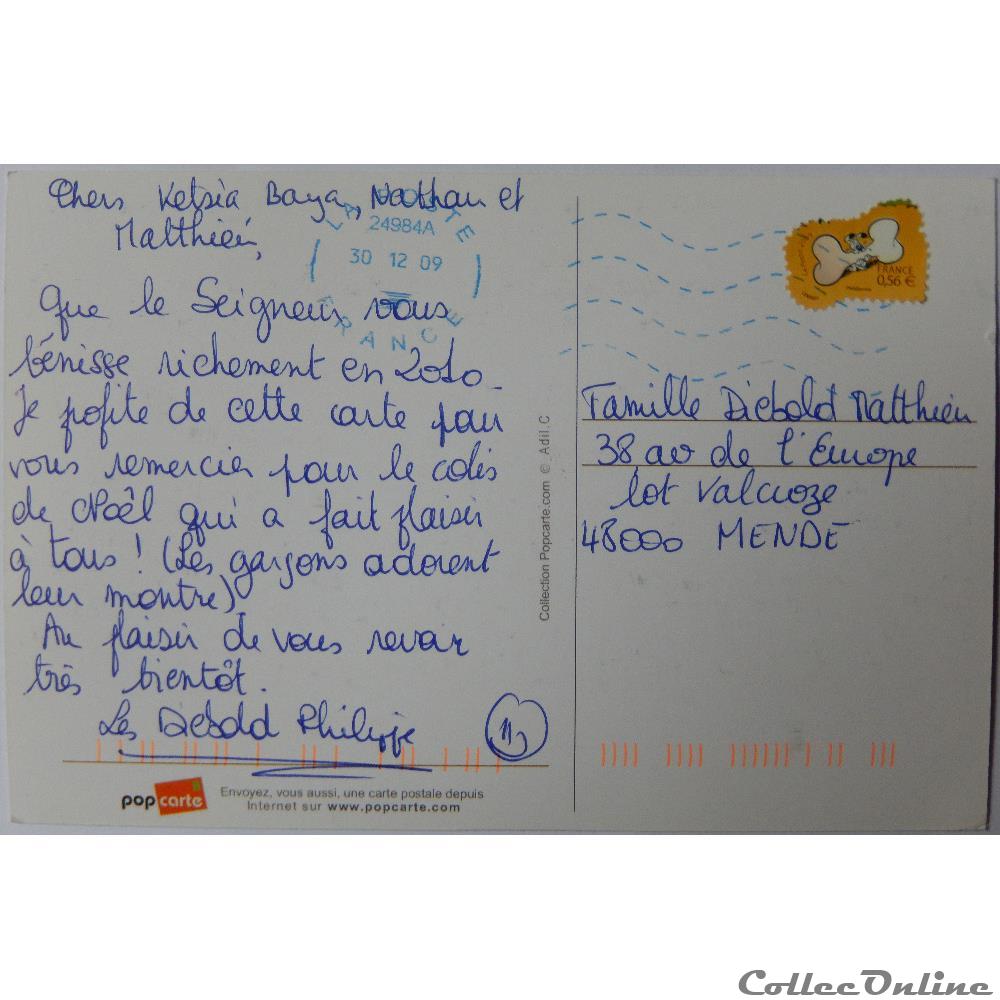 Chers Ketsia Baya, Nathan et
Matthieu,
Que le Seigneur vous
bénisse richement en 2010_
Je pofite de cette carte pour
vous remercier pour le colis
de Noêl qui a fait plaisir
à tous ! (Les garçons adorent
leur montre)
Au plaisir de vous revoir
très bientôt.
Les Diebold Philippe
LA POSTE
24984A
30 12 09
FRANCE
popcarte
Envoyez, vous aussi, une carte postale depuis
Internet sur www.popcarte.com
Collection Popcarte.com © Adil.C
FRANCE
0,56 €
Famille Diebold Matthieu
38 av de l'Europe
lot Valcroze
48000 MENDE
CollecOnline